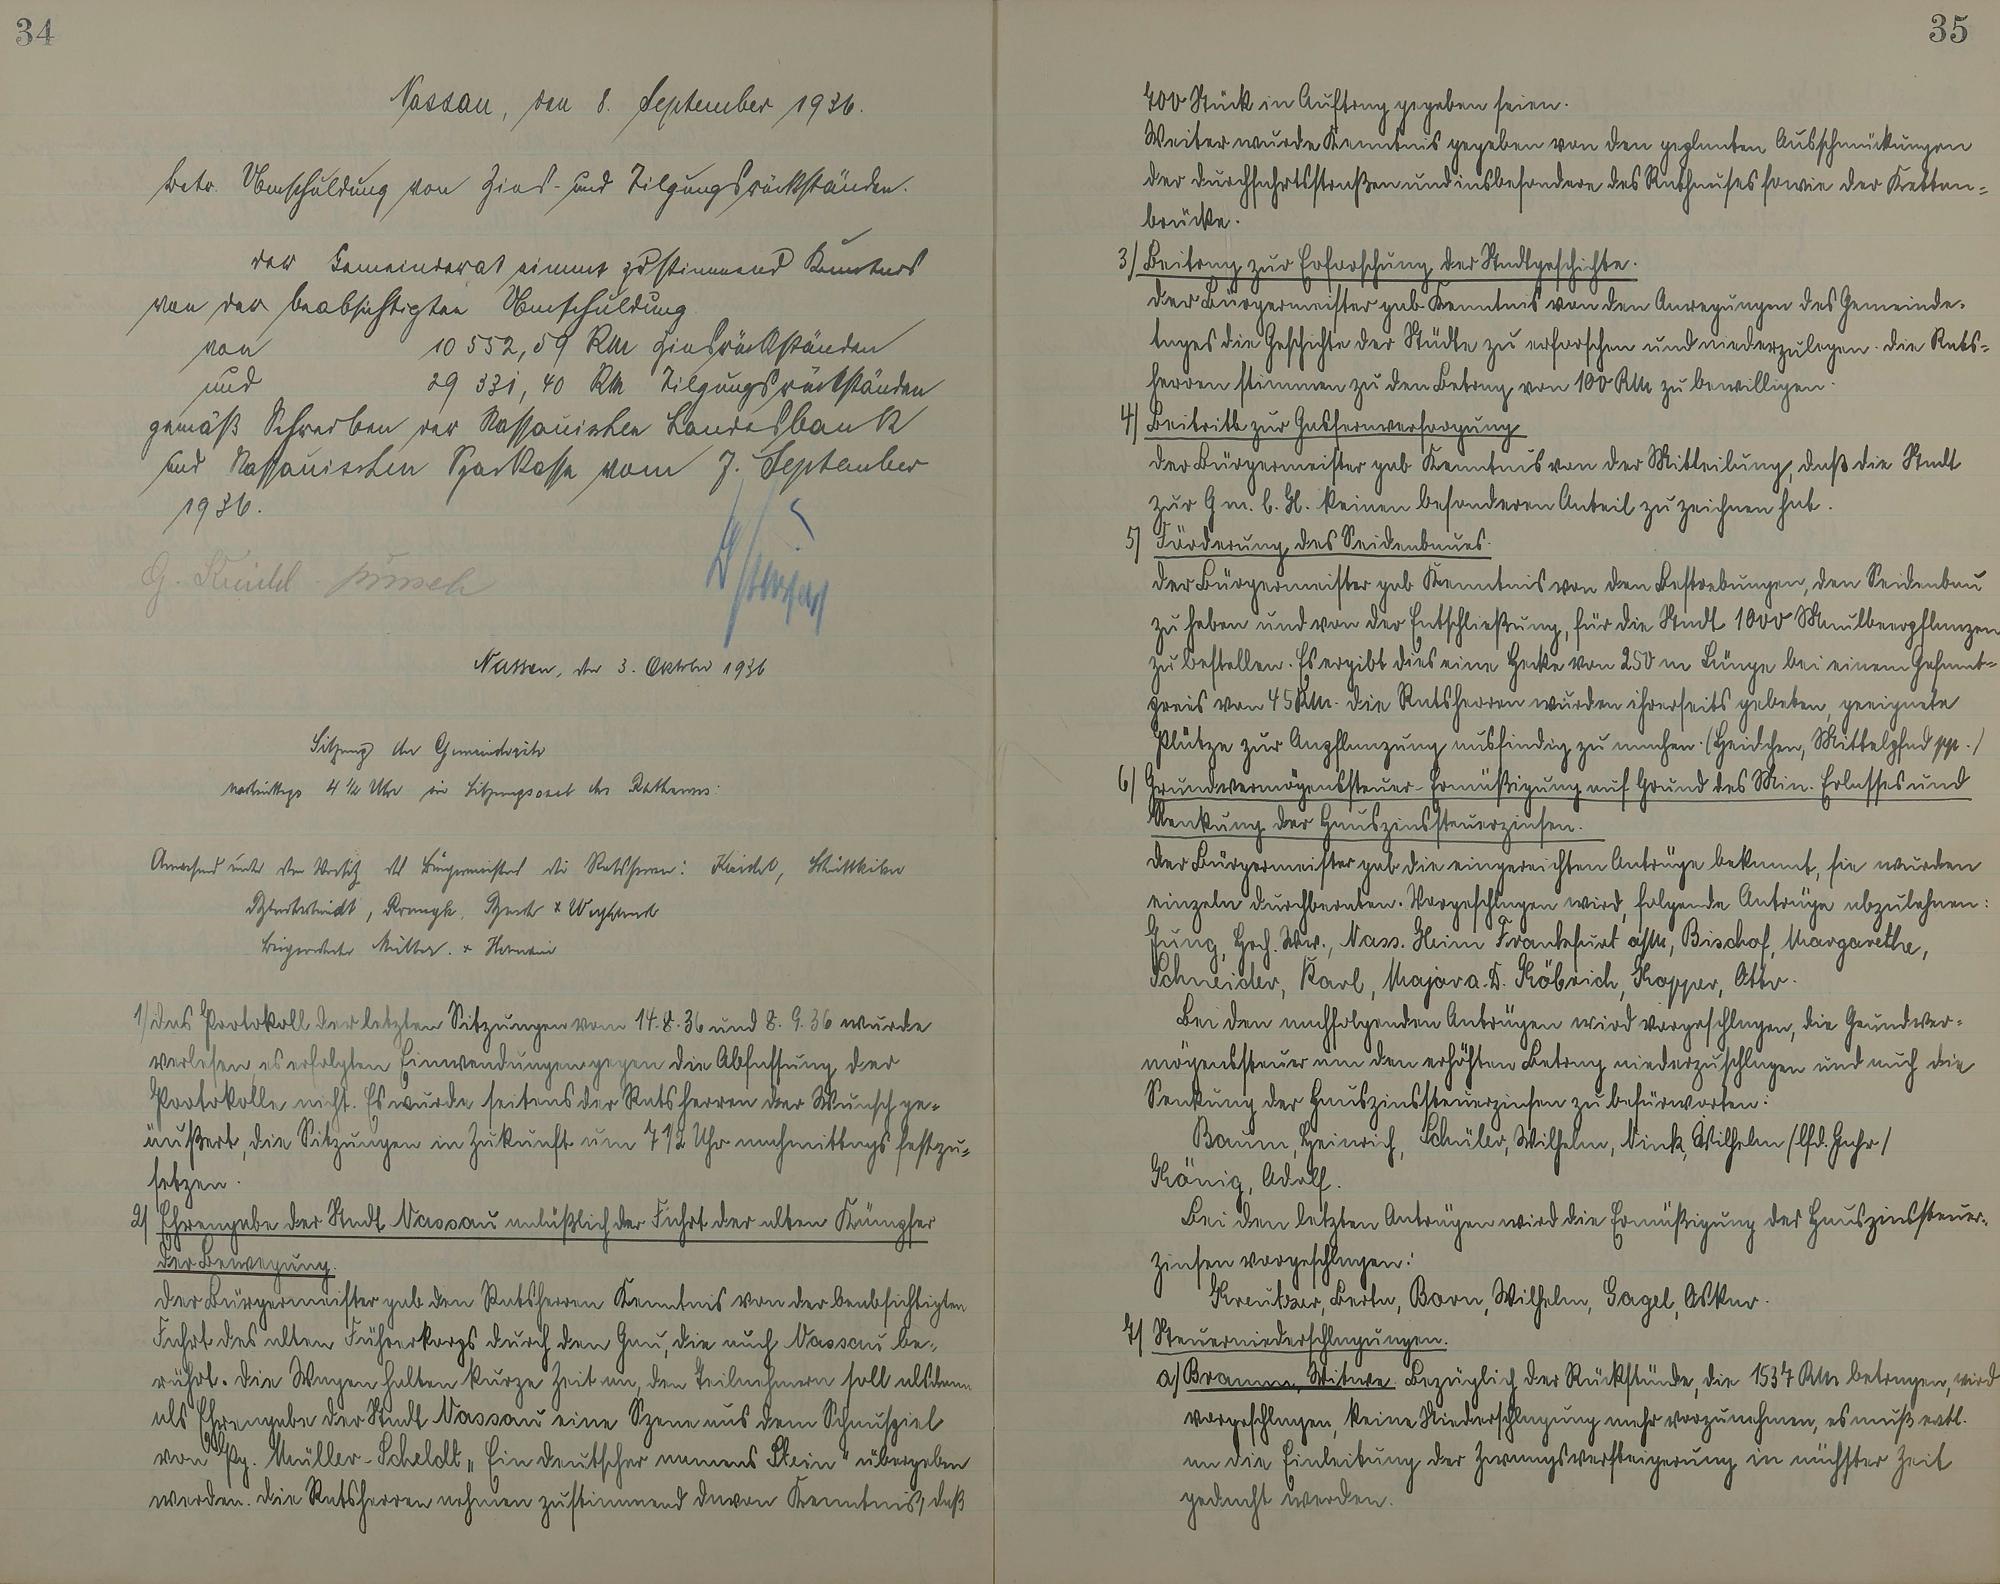 34
Nassau, den 8. September 1936.
betr. Umschuldung von Zins- und Tilgungsrückständen.
Der Gemeinderat nimmt zustimmend Kenntnis
von der beabsichtigten Umschuldung
von 10 552,59 RM Zinsrückständen
und 29 331,40 RM Tilgungsrückständen
gemäß Schreiben der Nassauischen Landesbank
und Nassauischen Sparkasse vom 7. September
1936.
Nassau, den 3. Oktober 1936
Sitzung der Gemeinderäte
nachmittags 4 1/2 Uhr im Sitzungssaal des Rathauses:
Anwesend unter dem Vorsitz des Bürgermeisters die Ratsherren: Keidel,
Beigeordneter Müller
1) Das Protokoll der letzten Sitzungen vom 14.8.36 und 8.9.36 wurde
verlesen, es erfolgten Einwendungen gegen die Abfassung der
Protokolle nicht. Es wurde seitens der Ratsherren der Wunsch ge-
äußert, die Sitzungen in Zukunft um 7 1/2 Uhr nachmittags festzu-
setzen.
2) Ehrengabe der Stadt Nassau anläßlich der Fahrt der alten Kämpfer
der Bewegung.
Der Bürgermeister gab den Ratsherren Kenntnis von der beabsichtigten
Fahrt des alten Führerkorps durch den Gau, die auch Nassau be-
rührt. Die Wagen halten kurze Zeit an, den Teilnehmern soll alsdann
als Ehrengabe der Stadt Nassau eine Szene aus dem Schauspiel
von Pg. Müller-Scheldt „Ein Deutscher namens Stein" übergeben
werden. Die Ratsherren nehmen zustimmend davon Kenntnis, daß
35
400 Stück in Auftrag gegeben seien.
Weiter wurde Kenntnis gegeben von den geplanten Ausschmückungen
der Durchfahrtsstraßen und insbesondere des Rathauses sowie der Ketten-
brücke.
3) Beitrag zur Erforschung der Stadtgeschichte.
Der Bürgermeister gab Kenntnis von den Anregungen des Gemeinde-
tages die Geschichte der Städte zu erforschen und niederzulegen. Die Rats-
herren stimmen zu den Betrag von 100 RM zu bewilligen.
4) Beitritt zur Gasfernversorgung
Der Bürgermeister gab Kenntnis von der Mitteilung, daß die Stadt
zur G.m.b.H. keinen besonderen Anteil zu zeichnen hat.
5) Förderung des Seidenbaues.
Der Bürgermeister gab Kenntnis von den Bestrebungen, den Seidenbau
zu heben und von der Entschließung, für die Stadt 1000 Maulbeerpflanzen
zu bestellen. Es ergibt dies eine Hecke von 250 m Länge bei einem Gesamt-
preis von 45 RM. Die Ratsherren wurden ihrerseits gebeten, geeignete
Plätze zur Anpflanzung ausfindig zu machen. (Heidchen, Mittelpfad pp.)
6) Grundvermögenssteuer-Ermäßigung auf Grund des Min. Erlasses und
Senkung der Hauszinssteuerzinsen.
Der Bürgermeister gab die eingereichten Anträge bekannt, sie wurden
einzeln durchberaten. Vorgeschlagen wird, folgende Anträge abzulehnen:
Jung, Hch. Ww., Nass. Heim Frankfurt a/M, Bischof, Margarethe,
Schneider, Karl, Major a.D. Köbrich, Kopper, Otto.
Bei den nachfolgenden Anträgen wird vorgeschlagen, die Grundver-
mögenssteuer um den erhöhten Betrag niederzuschlagen und auch die
Senkung der Hauszinssteuerzinsen zu befürworten:
Baum, Heinrich, Schüler, Wilhelm, Nink, Wilhelm /lfd. Jahr/
König, Adolf.
Bei den letzten Anträgen wird die Ermäßigung der Hauszinssteuer-
zinsen vorgeschlagen:
Kreutzer, Berta, Born, Wilhelm, Gagel, Oskar.
7) Steuerniederschlagungen.
a) Bramm, Witwe. Bezüglich der Rückstände, die 1537 RM betragen, wird
vorgeschlagen, keine Niederschlagung mehr vorzunehmen, es muß evtl.
an die Einleitung der Zwangsversteigerung in nächster Zeit
gedacht werden.